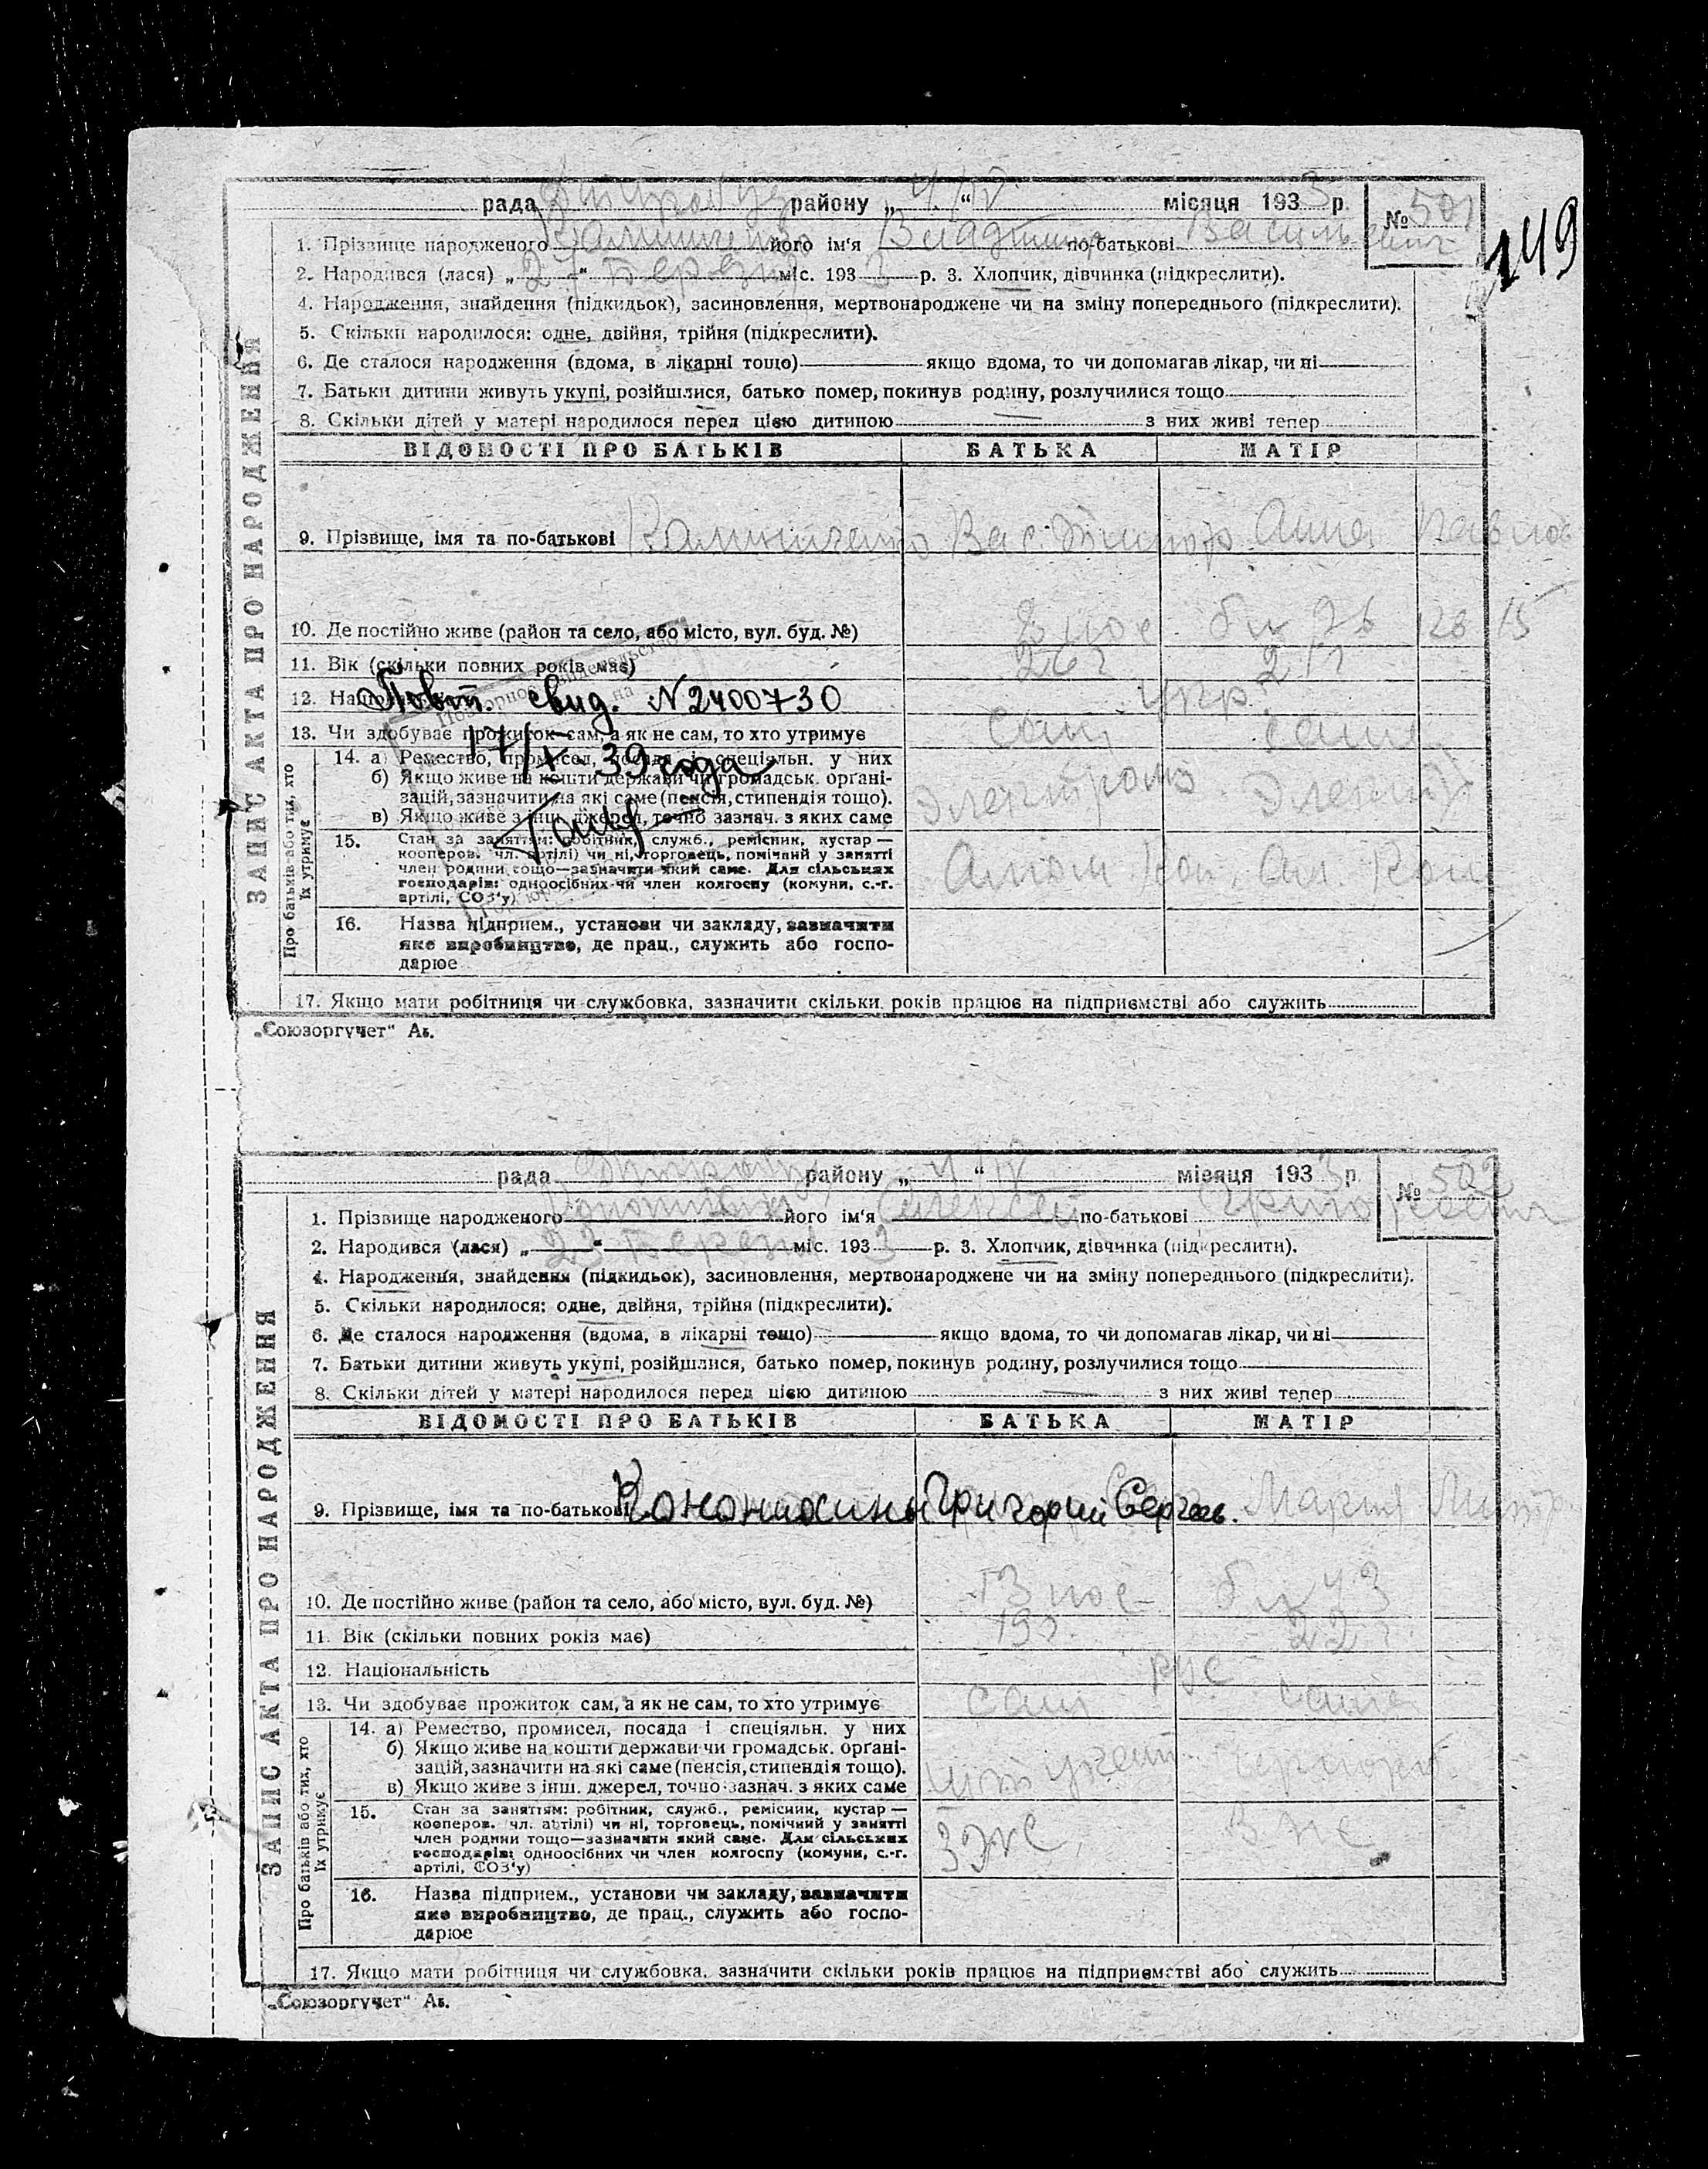 рада району „ 4/IV “ місяця 1933 р. № 501
149
1. Прізвище народженого Калиниченко його ім‘я Владимир по-батькові Васильевич
2. Народився (лася) „27“ Березня міс. 1933 р. 3. Хлопчик, дівчинка (підкреслити).
4. Народження, знайдення (підкидьок), засиновлення, мертвонароджене чи на зміну попереднього (підкреслити).
5. Скільки народилося: одне, двійня, трійня (підкреслити).
6. Де сталося народження (вдома, в лікарні тощо) якщо вдома, то чи допомагав лікар, чи ні
7. Батьки дитини живуть укупі, розійшлися, батько помер, покинув родину, розлучилися тощо
8. Скільки дітей у матері народилося перед цією дитиною з них живі тепер
ЗАПИС АКТА ПРО НАРОДЖЕННЯ
ВІДОМОСТІ ПРО БАТЬКІВ БАТЬКА МАТІР
9. Прізвище, імя та по-батькові Калиниченко Вас Анна Павлов
10. Де постійно живе (район та село, або місто, вул. буд. №)
11. Вік (скільки повних років має) 26 г 21
12. Повт. свид. № 2400730 укр.
13. Чи здобуває прожиток сам, а як не сам, то хто утримує сам сама
17/X-39 года
Про батьків або тих, хто їх утримує
14. а) Ремество, промисел, посада і спеціяльн. у них
б) Якщо живе на кошти держави чи громадськ. орґані-
зацій, зазначити на які саме (пенсія, стипендія тощо).
в) Якщо живе з інш. джерел, точно зазнач. з яких саме
15. Стан за заняттям: робітник, служб., ремісник, кустар —
кооперов. чл. артілі) чи ні, торговець, помічний у занятті
член родини тощо—зазначити який саме. Для сільських
господарів: одноосібних чи член колгоспу (комуни, с.-г.
артілі, СОЗ‘у)
16. Назва підприєм., установи чи закладу, зазначити
яке виробництво, де прац., служить або госпо-
дарює
17. Якщо мати робітниця чи службовка, зазначити скільки років працює на підприємстві або служить
„Союзоргучет“
рада району „ 4 “ IV місяця 1933 р. № 502
1. Прізвище народженого його ім‘я Алексей по-батькові Григорьевич
2. Народився (лася) „23“ Березня міс. 1933 р. 3. Хлопчик, дівчинка (підкреслити).
4. Народження, знайдення (підкидьок), засиновлення, мертвонароджене чи на зміну попереднього (підкреслити).
5. Скільки народилося: одне, двійня, трійня (підкреслити).
6. Де сталося народження (вдома, в лікарні тощо) якщо вдома, то чи допомагав лікар, чи ні
7. Батьки дитини живуть укупі, розійшлися, батько помер, покинув родину, розлучилися тощо
8. Скільки дітей у матері народилося перед цією дитиною з них живі тепер
ЗАПИС АКТА ПРО НАРОДЖЕННЯ
ВІДОМОСТІ ПРО БАТЬКІВ БАТЬКА МАТІР
9. Прізвище, імя та по-батькові Кононыхины Григорий Сергеев. Мария
10. Де постійно живе (район та село, або місто, вул. буд. №)
11. Вік (скільки повних років має) 22
12. Національність рус
13. Чи здобуває прожиток сам, а як не сам, то хто утримує сам сама
Про батьків або тих, хто їх утримує
14. а) Ремество, промисел, посада і спеціяльн. у них
б) Якщо живе на кошти держави чи громадськ. орґані-
зацій, зазначити на які саме (пенсія, стипендія тощо).
в) Якщо живе з інш. джерел, точно зазнач. з яких саме
15. Стан за заняттям: робітник, служб., ремісник, кустар —
кооперов. чл. артілі) чи ні, торговець, помічний у занятті
член родини тощо—зазначити який саме. Для сільських
господарів: одноосібних чи член колгоспу (комуни, с.-г.
артілі, СОЗ‘у)
16. Назва підприєм., установи чи закладу, зазначити
яке виробництво, де прац., служить або госпо-
дарює
17. Якщо мати робітниця чи службовка, зазначити скільки років працює на підприємстві або служить
„Союзоргучет“